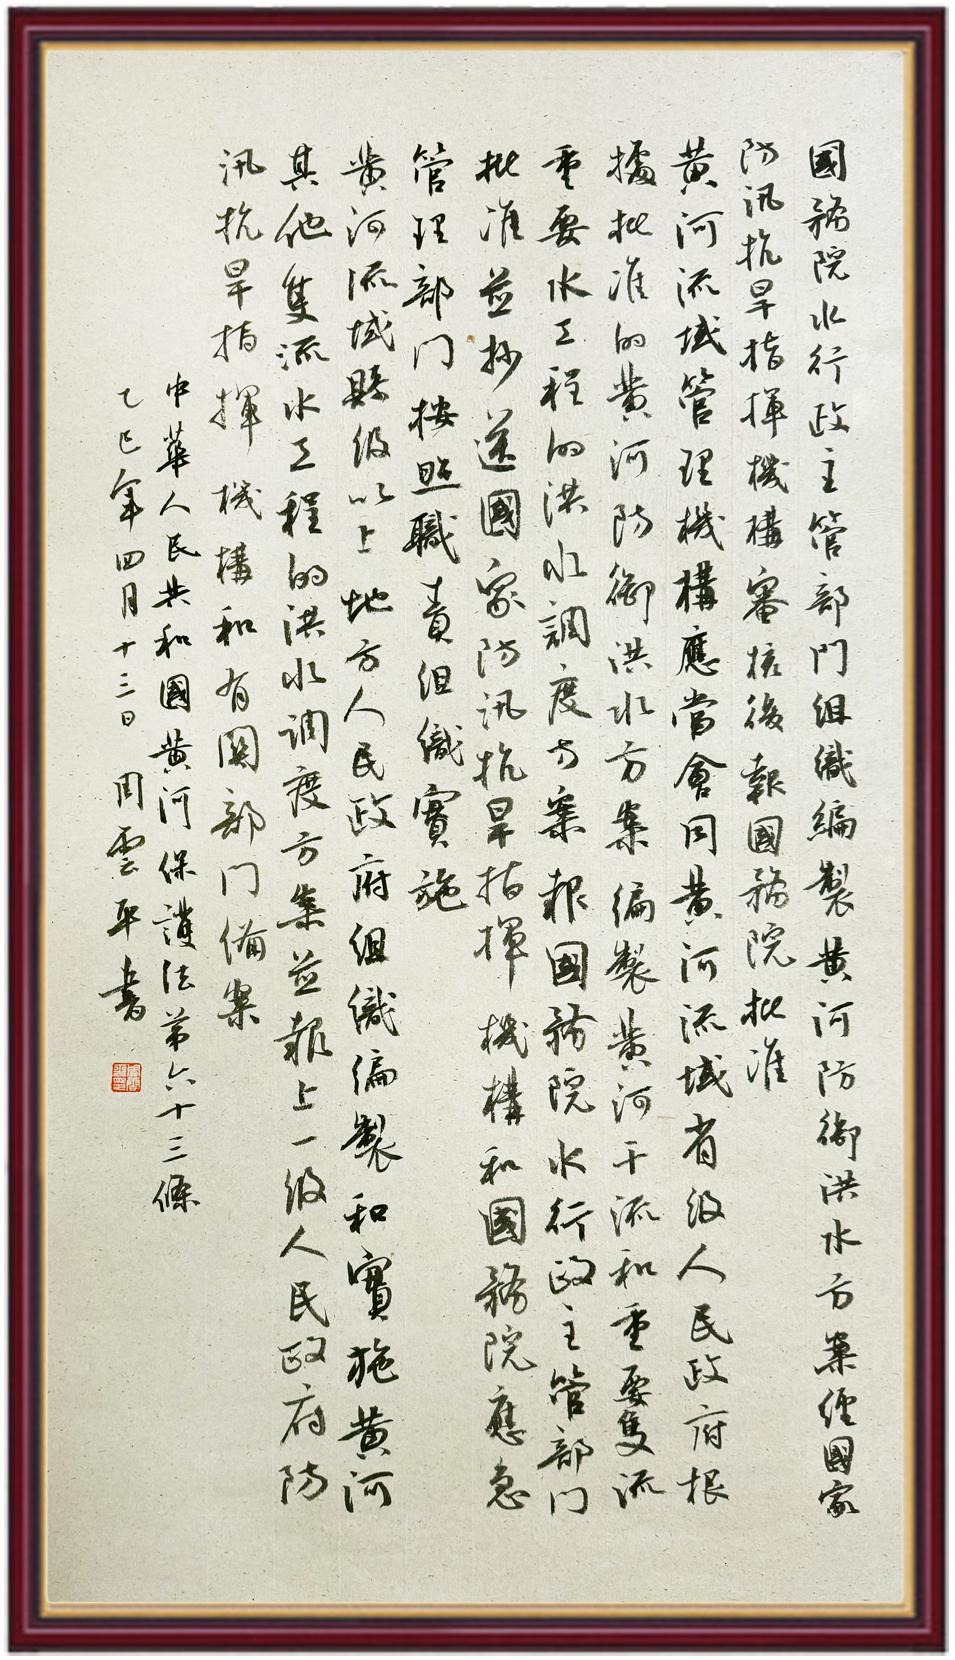 國務院水行政主管部門組織編製黃河防御洪水方案經國家
防汛抗旱指揮機構審核後報國務院批准
黃河流域管理機構應當會同黃河流域省級人民政府根
據批准的黃河防御洪水方案編製黃河干流和重要隻流
重要水工程的洪水調度方案報國務院水行政主管部门
批准並抄送國家防汛抗旱指揮機構和國務院應急
管理部门按照職責組織實施
黃河流域縣級以上地方人民政府組織編製和實施黃河
其他隻流水工程的洪水調度方案並報上一級人民政府防
汛抗旱指揮機構和有關部门備案
中華人民共和國黃河保護法第六十三條
乙巳年四月十三日周雲平書